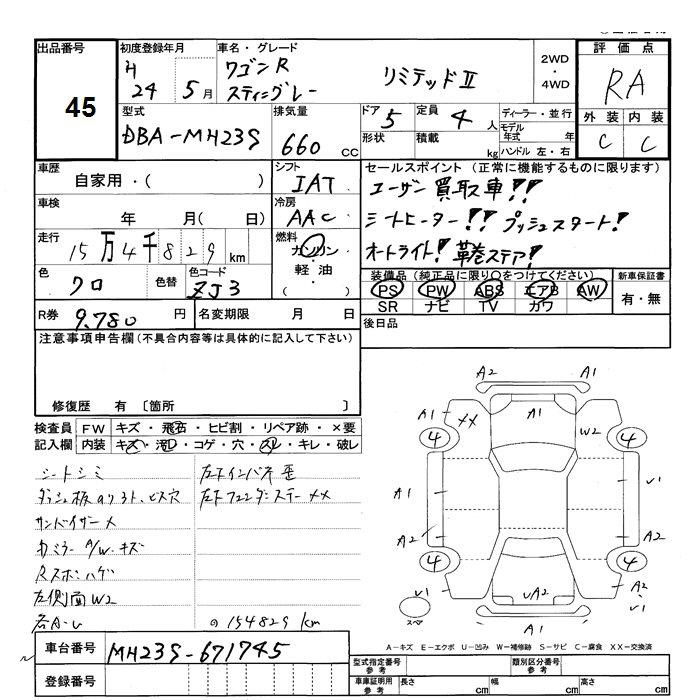 出品番号
45
初度登録年月
H 24 5月
車名・グレード
ワゴンR
スティングレー リミテッドⅡ
2WD
・
4WD
評価点
RA
外装 内装
C C
型式
DBA-MH23S
排気量
660 cc
ドア 5
形状
定員 4 人
積載 kg
ディーラー・並行
モデル年式 年
ハンドル 左・右
車歴
自家用・( )
シフト
IAT
セールスポイント (正常に機能するものに限ります)
ユーザー買取車!!
シートヒーター!! プッシュスタート!
オートライト! 革巻ステア!
車検
年 月(日)
冷房
AAC
走行
15万4千829 km
燃料
ガソリン
・
軽油
・
( )
色
クロ
色替
色コード
ZJ3
装備品 (純正品に限り○をつけてください)
PS PW ABS エアB AW
SR ナビ TV カワ
新車保証書
有・無
R券 9,780 円
名変期限 月 日
後日品
注意事項申告欄(不具合内容等は具体的に記入して下さい)
修復歴 有 〔箇所 〕
検査員記入欄
FW キズ・飛石・ヒビ割・リペア跡・×要
内装 キズ・汚レ・コゲ・穴・スレ・キレ・破レ
シートシミ
ダッシュ板のリヨト、ビス穴
サンバイザー×
カミラー A/W.キズ
Rスポハゲ
左側面W2
各A-U
左下インパネ歪
左Fフェンダーステー××
の154829km
A2 A1
A1 ×× A1 W2
4 4
A1 U1
A2 A2
4 4
U1 UA2 A2 U1
スペア
A1
A-キズ E-エクボ U-凹み W-補修跡 S-サビ C-腐食 XX-交換済
車台番号 MH23S-671745
登録番号
型式指定番号
参考
類別区分番号
参考
車庫証明用
参考
長さ cm
幅 cm
高さ cm